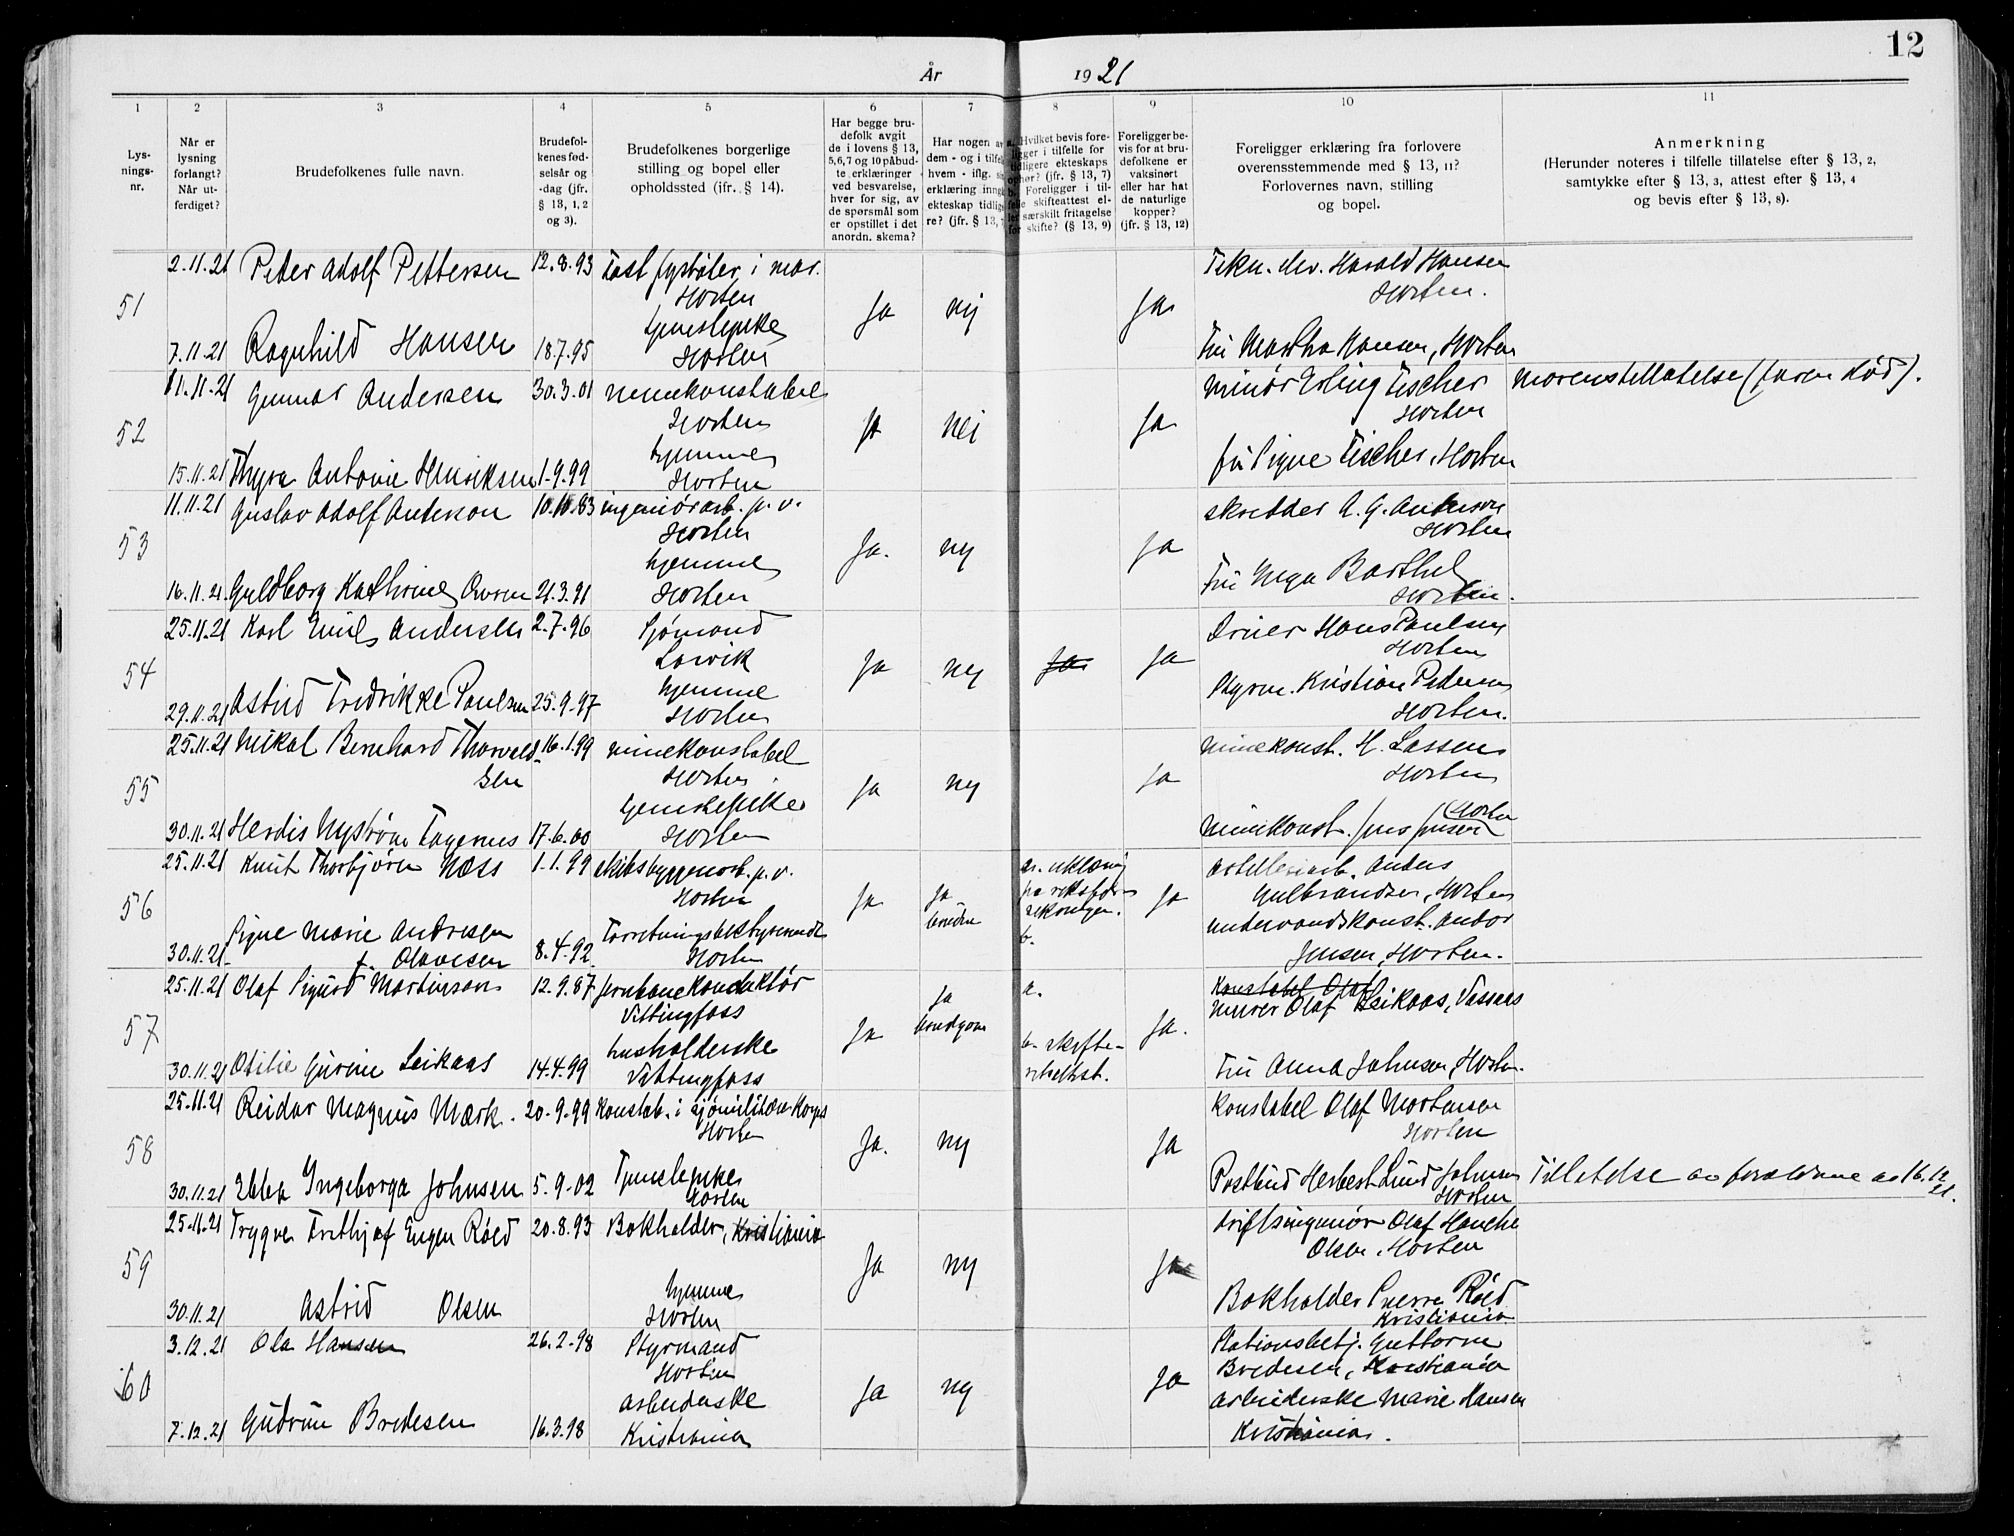 12
År 1921
1 2 3 4 5 6 7 8 9 10 11
Lys-
nings-
nr.
Når er
lysning
forlangt?
Når ut-
ferdiget?
Brudefolkenes fulle navn.
Brudefol-
kenes fød-
selsår og
-dag (jfr.
§ 13, 1, 2
og 3).
Brudefolkenes borgerlige
stilling og bopel eller
opholdssted (ifr. § 14).
Har begge bru-
defolk avgit
de i lovens § 13,
5,6,7 og 10 påbud-
te erklæringer
ved besvarelse,
hver for sig, av
de spørsmål som
er opstillet i det
anordn. skema?
Har nogen av
dem - og i tilfel
hvem - iflg.
erklæring inng
ekteskap tidlige
re? (jfr. § 13,
Hvilket bevis fore-
ligger i tilfelle for
tidligere ekteskaps
ophør? (jfr. § 13, 7)
Foreligger i til-
felle skifteattest el-
ler særskilt fritagelse
for skifte? (§ 13, 9)
Foreligger be-
vis for at bru-
defolkene er
vaksinert
eller har hat
de naturlige
kopper?
(jfr. § 13, 12)
Foreligger erklæring fra forlovere
overensstemmende med § 13, 11?
Forlovernes navn, stilling
og bopel.
Anmerkning
(Herunder noteres i tilfelle tillatelse efter § 13, 2,
samtykke efter § 13, 3, attest efter § 13, 4
og bevis efter § 13, 8).
51
2.11.21 Peter Adolf Pettersen 12.8.93 fast fyrbøter i mar.
Horten
Ja nej Ja
Tekn. elev. Harald Hansen
Horten.
7.11.21 Ragnhild Hansen 18.7.95 tjenestepike
Horten
Fru Martha Hansen, Horten
52
11.11.21 Gunnar Andersen 30.3.01 minekonstabel
Horten
Ja nei Ja
minør Erling Fischer
Horten
Morens tillatelse (faren død).
15.11.21 Thyra Antonie Henriksen 1.9.99 hjemme
Horten
fru Signe Fischer, Horten
53
11.11.21 Gustav Adolf Anderson 10.10.83 ingeniørarb. p. v.
Horten
Ja. nej Ja
skredder A. G. Anderson
Horten
16.11.21. Guldborg Kathrine 21.3.91 hjemme
Horten
Fru Barthel
Horten.
54
25.11.21 Karl Emil Andersen 2.7.96 Sjømand
Larvik
Ja nej Ja Ja
Driver Hans Paulsen
Horten
29.11.21 Astrid Fredrikke Paulsen 25.9.97 hjemme
Horten
Styrm. Kristian Pedersen
Horten.
55
25.11.21 Mikal Bernhard Thorvald- 16.1.99 minekonstabel
sen
Horten
Ja nej Ja
minekonst. H. Lassen
Horten
30.11.21 Herdis Nystrøm 17.6.00 tjenestepike
Horten
minekonst. Jens Jensen
Horten
56
25.11.21 Knut Thorbjørn Næss 1.1.99 skibsbyggerarb. p. v.
Horten
Ja Ja
bruden
b. Ja
artilleriarb. Anders
Gulbrandsen, Horten
30.11.21 Signe Marie Andresen
f. Olavesen 8.4.92 Forretningsbestyrerinde
Horten
undervandskonst. Andor
Jensen, Horten.
57
25.11.21 Olaf Sigurd Martinson 12.9.87 jernbanekonduktør
Vittingfoss
Ja Ja
brudgom
a.
b. skifte-
attest.
Ja.
Konstabel Olaf
murer Olaf Leikaas, Vassaas
30.11.21 Otilie Gurine Leikaas 14.4.99 husholderske
Vittingfoss
Fru Anna Johnsen, Horten.
58
25.11.21 Reidar Magnus Mærk. 20.9.99 Konstab. i sjømilitære Korps
Horten
Ja. nej Ja
Konstabel Olaf Mortensen
Horten
30.11.21 Ebba Ingeborga Johnsen 5.9.02 Tjenestepike
Horten
Postbud Herbert Lund Johnsen
Horten
Tillatelse av forældrene av 16.12
21.
59
25.11.21 Trygve Frithjof Eugen Røed 20.8.93 Bokholder, Kristiania
Ja nej Ja
Driftsingeniør Olaf Hauche
Olsen, Horten
30.11.21 Astrid Olsen hjemme
Horten
Bokholder Sverre Røed
Kristiania
60
3.12.21 Ola Hansen 26.2.98 Styrmand
Horten
Ja nej Ja
Stationsbetj. Guttorm
Bredesen, Kristiania
7.12.21 Gudrun Bredesen 16.3.98 arbeiderske
Kristiania
arbeiderske Marie Hansen
Kristiania.